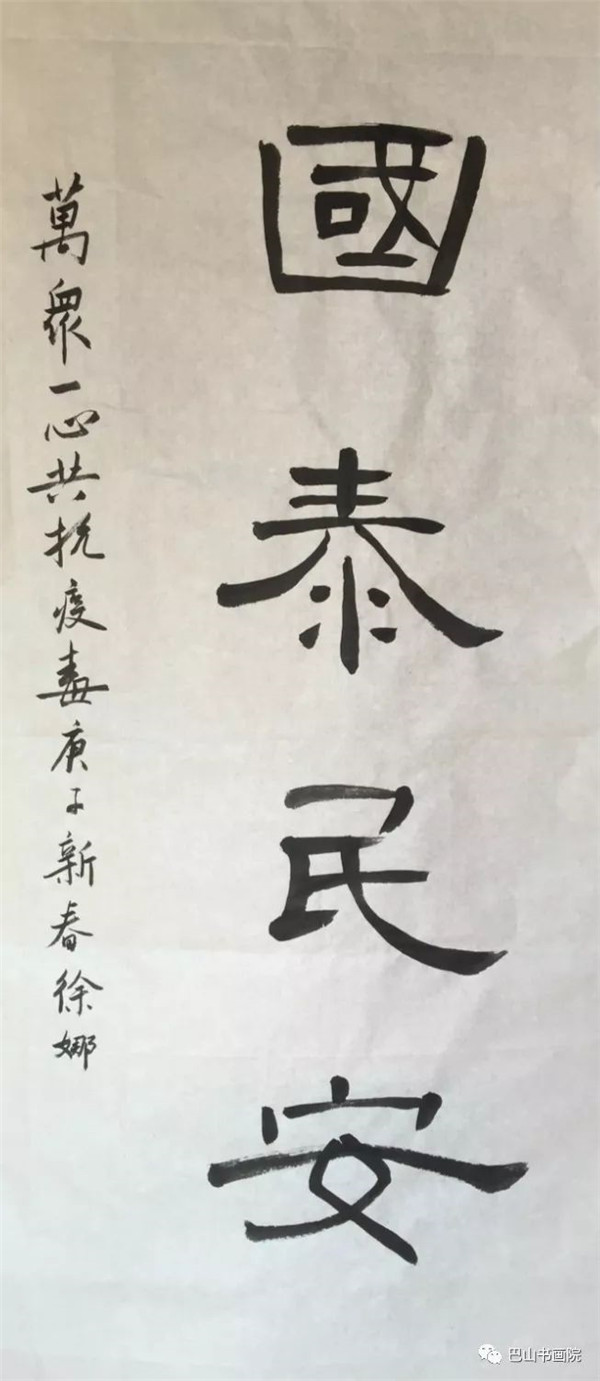 國泰民安
萬眾一心共抗疫毒庚子新春徐娜
巴山书画院